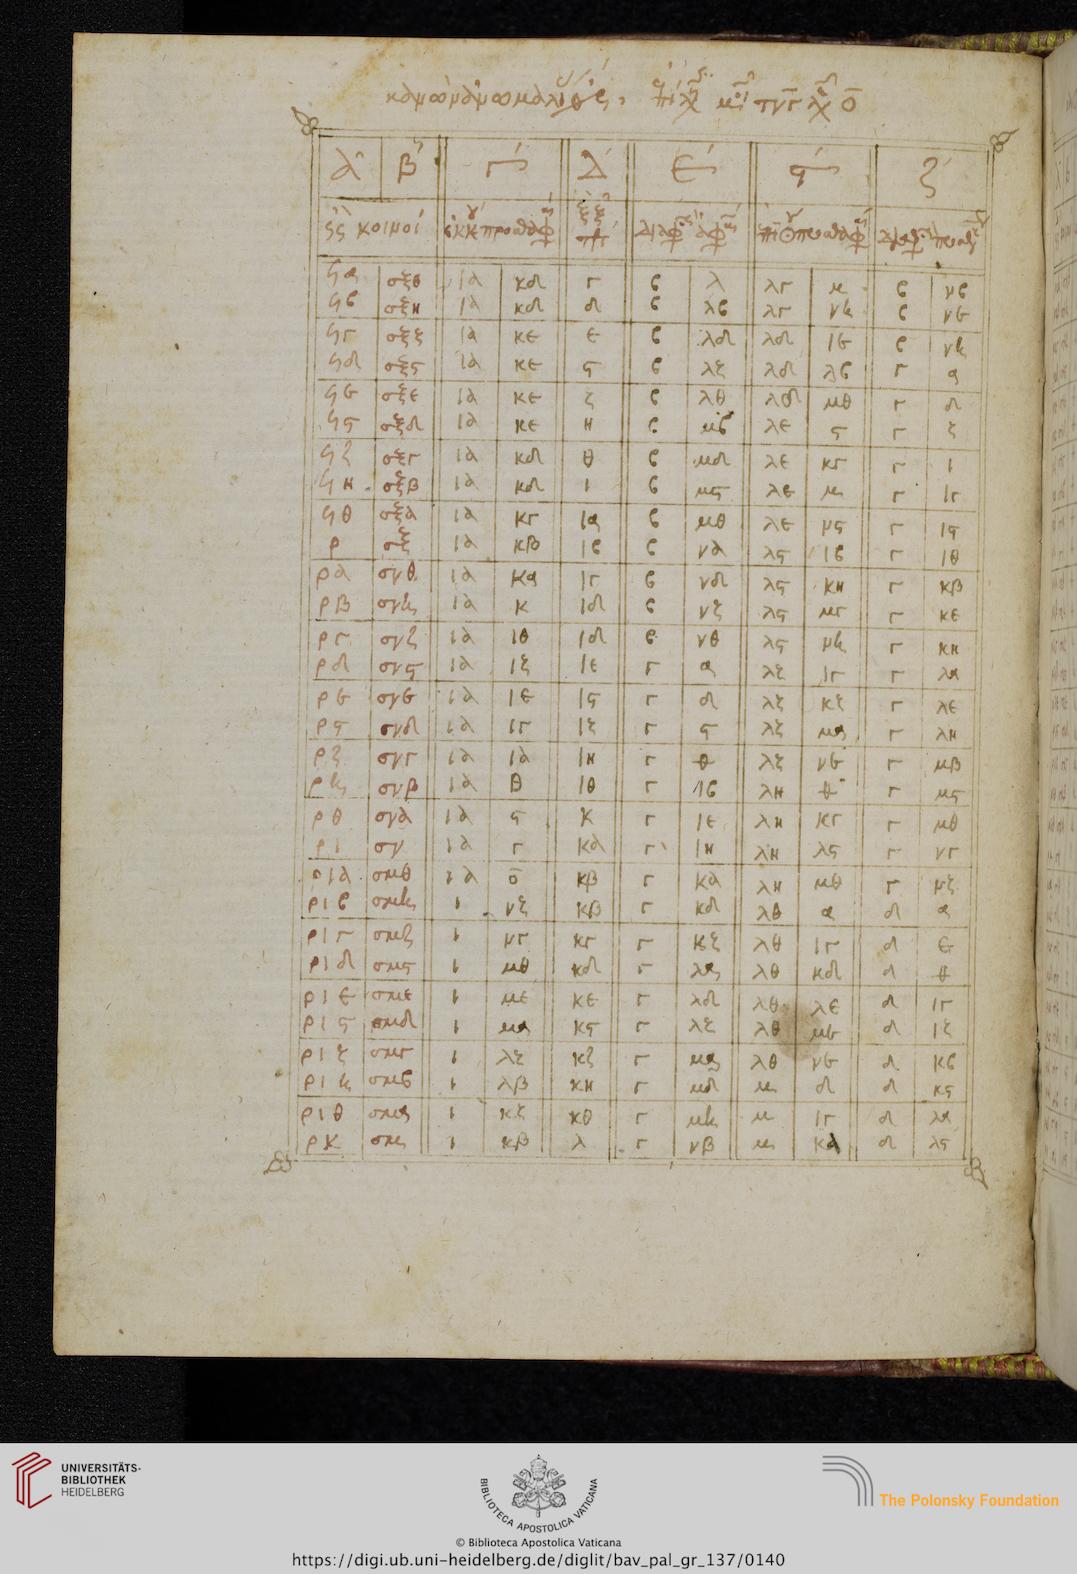 α β γ δ ε ϛ ζ
ϟα σξθ ια κδ γ β λ λγ μ β νβ
ϟβ σξη ια κδ δ β λβ λγ νη β νε
ϟγ σξζ ια κε ε β λδ λδ ιε β νη
ϟδ σξϛ ια κε ϛ β λζ λδ λβ γ α
ϟε σξε ια κε ζ β λθ λδ μθ γ δ
ϟϛ σξδ ια κε η β μβ λε ϛ γ ζ
ϟζ σξγ ια κδ θ β μδ λε κγ γ ι
ϟη σξβ ια κδ ι β μϛ λε μ γ ιγ
ϟθ σξα ια κγ ια β μθ λε νϛ γ ιϛ
ρ σξ ια κβ ιβ β να λϛ ιβ γ ιθ
ρα σνθ ια κα ιγ β νδ λϛ κη γ κβ
ρβ σνη ια κ ιδ β νζ λϛ μγ γ κε
ργ σνζ ια ιθ ιδ β νθ λϛ νη γ κη
ρδ σνϛ ια ιζ ιε γ α λζ ιγ γ λα
ρε σνε ια ιε ιϛ γ δ λζ κζ γ λε
ρϛ σνδ ια ιγ ιζ γ ϛ λζ μα γ λη
ρζ σνγ ια ια ιη γ θ λζ νε γ μβ
ρη σνβ ια θ ιθ γ ιβ λη θ γ μϛ
ρθ σνα ια ϛ κ γ ιε λη κγ γ μθ
ρι σν ια γ κα γ ιη λη λϛ γ νγ
ρια σμθ ια ο κβ γ κα λη μθ γ νζ
ριβ σμη ι νζ κβ γ κδ λθ α δ α
ριγ σμζ ι νγ κγ γ κζ λθ ιγ δ ε
ριδ σμϛ ι μθ κδ γ λα λθ κδ δ θ
ριε σμε ι με κε γ λδ λθ λε δ ιγ
ριϛ σμδ ι μα κϛ γ λζ λθ με δ ιζ
ριζ σμγ ι λζ κζ γ μα λθ νε δ κβ
ριη σμβ ι λβ κη γ μδ μ δ δ κϛ
ριθ σμα ι κζ κθ γ μη μ ιγ δ λα
ρκ σμ ι κβ λ γ νβ μ κα δ λϛ
UNIVERSITÄTS-
BIBLIOTHEK
HEIDELBERG
BIBLIOTECA APOSTOLICA VATICANA
The Polonsky Foundation
© Biblioteca Apostolica Vaticana
https://digi.ub.uni-heidelberg.de/diglit/bav_pal_gr_137/0140